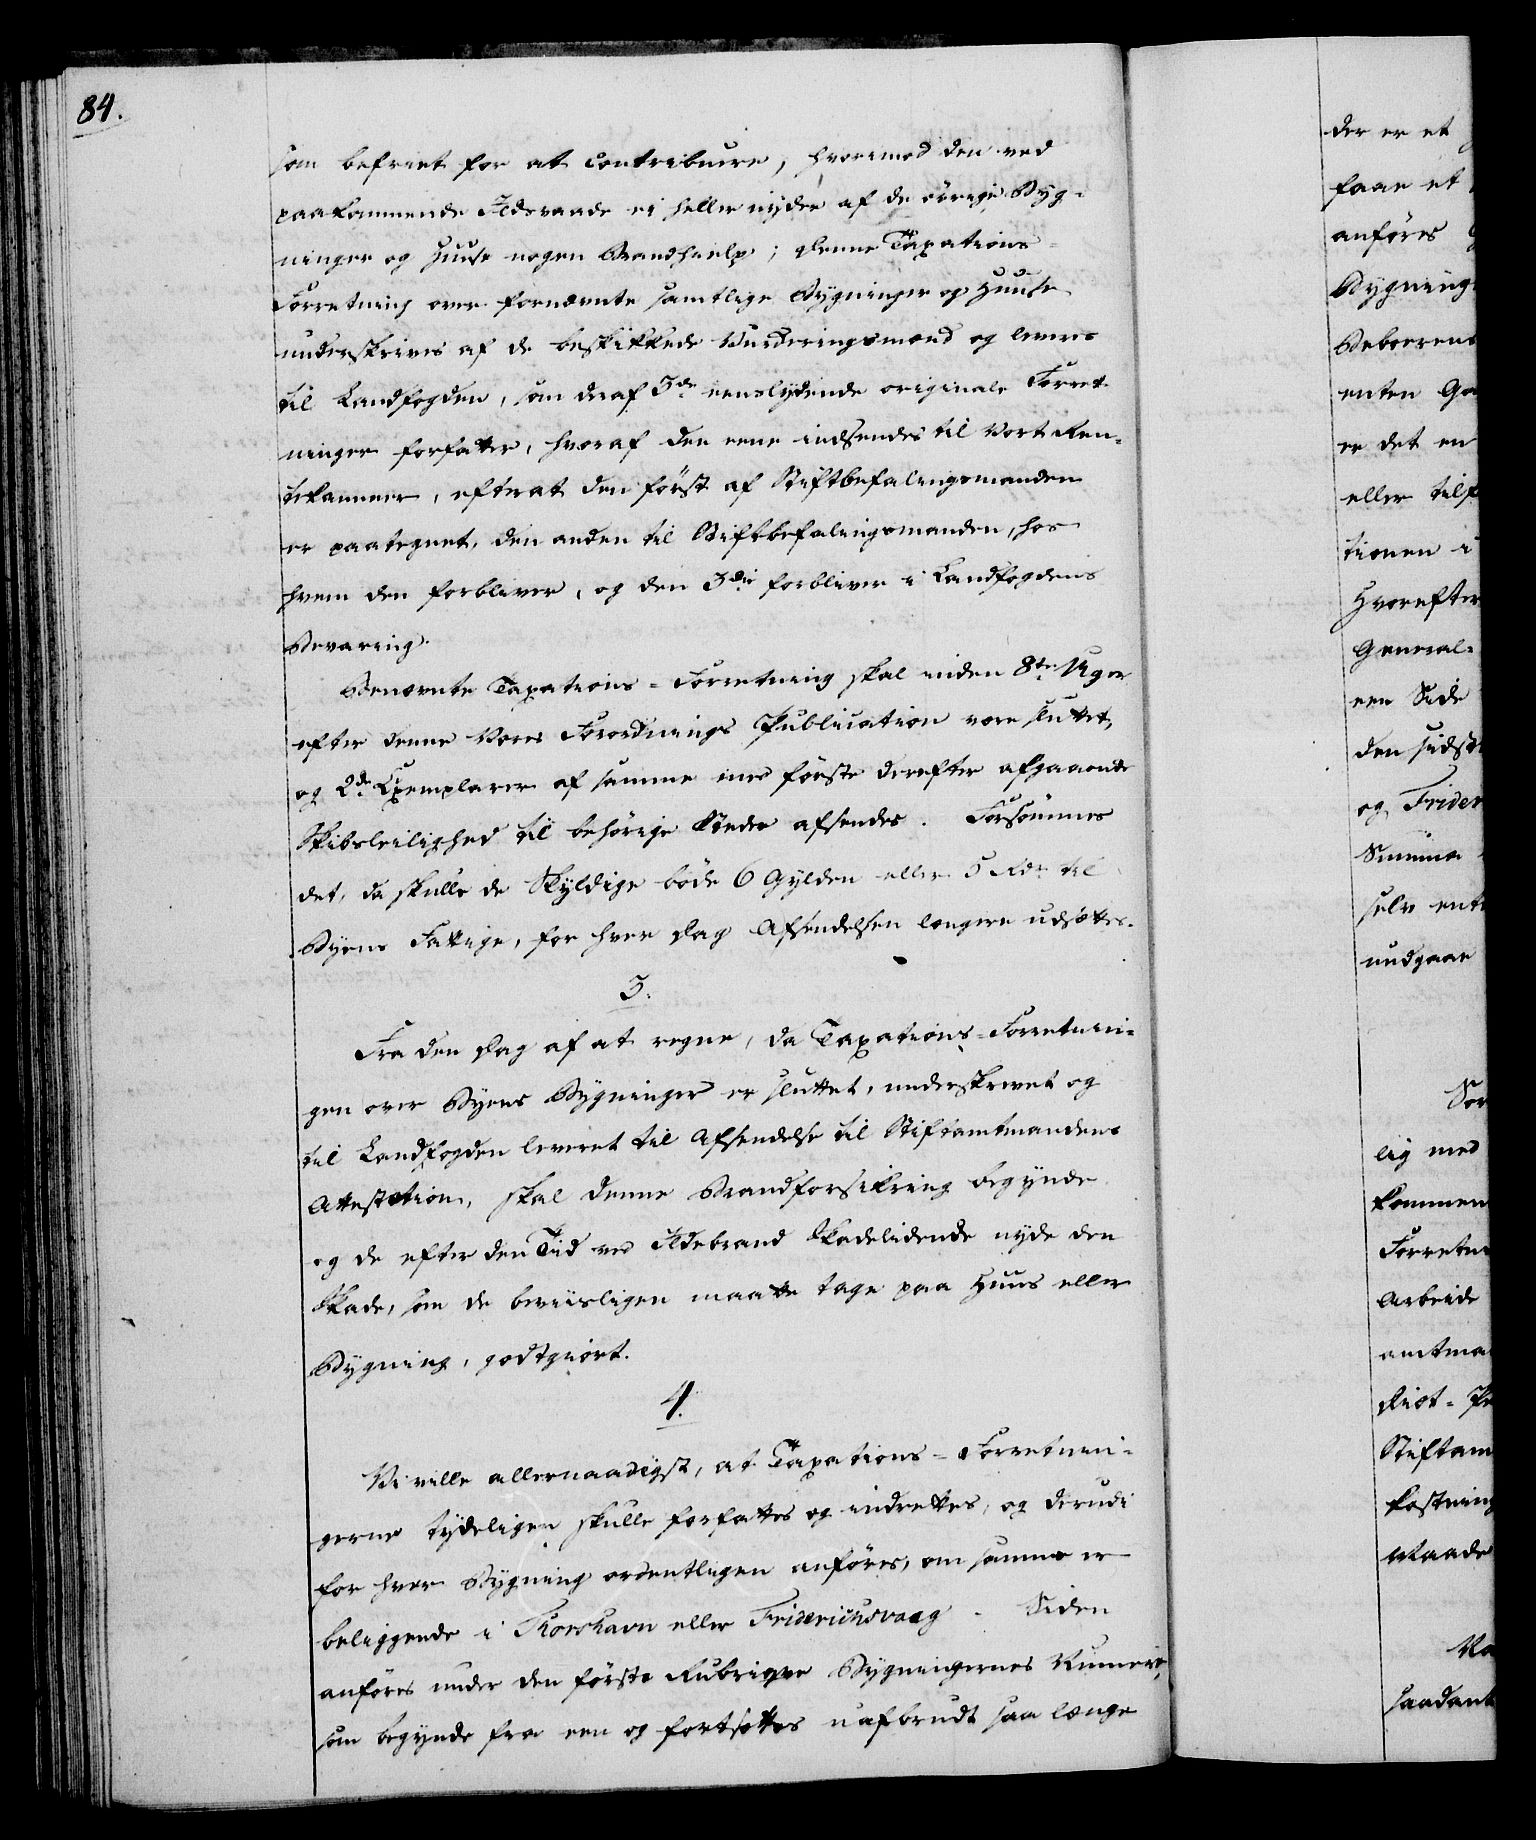 84.
som befriet for at contribuere, hvorimod den ved
paakommende Ildsvaade ei heller nyder af de övrige Byg-
ninger og Huuse nogen Brandhielp; denne Taxations-
Forretning over fornævnte samtlige Bygninger og Huuse
underskrives af de beskikkede Vurderingsmænd og leveres
til Landfogden, som deraf 3de eenslydende originale Forret-
ninger forfatter, hvoraf den eene indsendes til Vort Ren-
tekammer, efterat den först af Stiftbefalingsmanden
er paategnet, den anden til Stiftbefalingsmanden, hos
hvem den forbliver, og den 3die forbliver i Landfogdens
Bevaring.
Benævnte Taxations-Forretning skal inden 8te Uger
efter denne Vores Forordnings Publication være sluttet,
og 2de Exemplarer af samme med förste derefter afgaaende
Skibsleilighed til behörige Stæder afsendes. Forsömmes
det, da skulle de Skyldige böde 6 Gylden eller 5 Rdr til
Byens Fattige, for hver Dag Afsendelsen længere udsættes.
3.
Fra den Dag af at regne, da Taxations-Forretnin-
gen over Byens Bygninger er sluttet, underskrevet og
til Landfogden leveret til Afsendelse til Stiftamtmandens
Attestation, skal denne Brandforsikring begynde
og de efter den Tid ved Ildebrand Skadelidende nyde den
Skade, som de beviisligen maatte tage paa Huus eller
Bygning, godtgiort.
4.
Vi ville allernaadigst, at Taxations-Forretnin-
gerne tydeligen skulle forfattes og indrettes, og derudi
for hver Bygning ordentligen anföres, om samme er
beliggende i Thorshavn eller Friderichsvaag. Siden
anföres under den förste Rubrique Bygningernes Numere,
som begynde fra een og fortsættes uafbrudt saa længe
der er et
faae et
anföres
Bygning
Beboerens
enten Ga
er det en
eller tilf
tionen i
Hvorefter
General-
een Side
den sidst
og Frider
Summa
selv ent
undgaae
lig med
kommen
Forretn
Arbeide
amtma
Stiftam
kostning
Maade
saadant